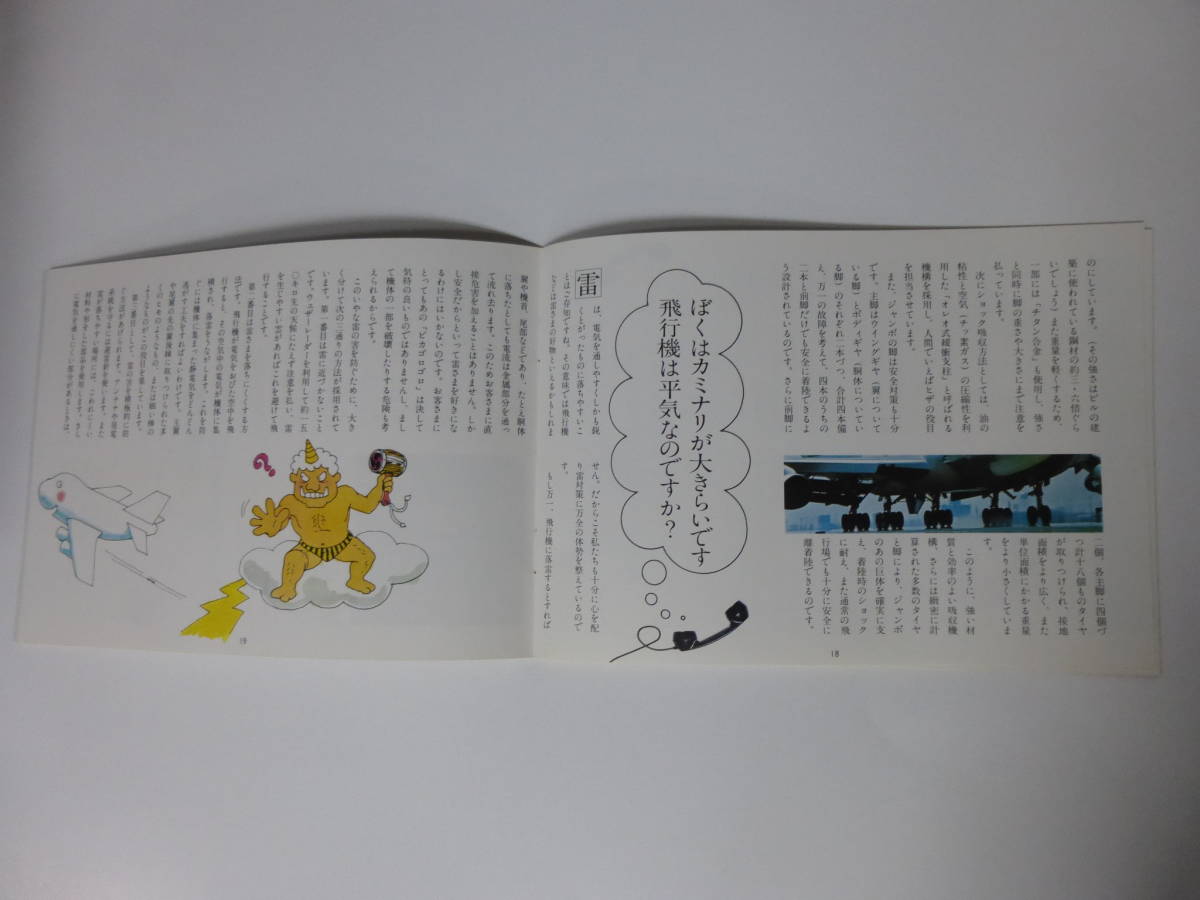 のにしています。(その強さはビルの建
築に使われている鋼材の約三・六倍ぐら
いでしょう)また重量を軽くするため、
一部には「チタン合金」も使用し、強さ
と同時に脚の重さや大きさにまで注意を
払っています。
次にショック吸収方法としては、油の
粘性と空気(チッ素ガス)の圧縮性を利
用した「オレオ式緩衝支柱」と呼ばれる
機構を採用し、人間でいえばヒザの役目
を担当させています。
また、ジャンボの脚は安全対策も十分
です。主脚はウイングギヤ(翼について
いる脚)とボディギヤ(胴体についてい
る脚)のそれぞれ二本づつ、合計四本備
え、万一の故障を考えて、四本のうちの
二本と前脚だけでも安全に着陸できるよ
う設計されているのです。さらに前脚に
二個、各主脚に四個づ
つ計十八個ものタイヤ
が取りつけられ、接地
面積をより広く、また
単位面積にかかる重量
をより小さくしていま
す。
このように、強い材
質と効率のよい吸収機
構、さらには細密に計
算された多数のタイヤ
と脚により、ジャンボ
のあの巨体を確実に支
え、着陸時のショック
に耐え、また通常の飛
行場でも十分に安全に
離着陸できるのです。
18
ぼくはカミナリが大きらいです
飛行機は平気なのですか?
雷は、電気を通しやすくしかも鋭
くとがったものに落ちやすいこ
とはご存知ですね。その意味では飛行機
などは雷さまの好物といえるかもしれま
せん。だからこそ私たちも十分に心を配
り雷対策に万全の体勢を整えているので
す。
もし万一、飛行機に落雷するとすれば
翼や機首、尾部などであり、たとえ胴体
に落ちたとしても電流は金属部分を通っ
て流れ去ります。このためお客さまに直
接危害を加えることはありません。しか
し安全だからといって雷さまを好きにな
るわけにはいかないのです。お客さまに
とってもあの「ピカゴロゴロ」は決して
気持の良いものではありませんし、まし
て機体の一部を破壊したりする危険も考
えられるからです。
このいやな雷の害を防ぐために、大き
く分けて次の三通りの方法が採用されて
います。第一番目は雷に近づかないこと
です。ウェザーレーダーを利用して約一五
〇キロ先の天候にたえず注意を払い、雷
を生じやすい雲があればこれを避けて飛
行することです。
第二番目は雷さまを落ちにくくする方
法です。飛行機が電気をおびた空中を飛
行すると、その空気中の電気が機体に集
積され、落雷をうながします。これを防
ぐには機体に集まった静電気をどんどん
逃がす工夫をすればよいわけです。主翼
や尾翼の先の翼後縁に取りつけられた多
くのヒモのようなもの、または細い棒の
ようなものが、この役目を果しています。
第三番目として、雷の害を積極的に防
19